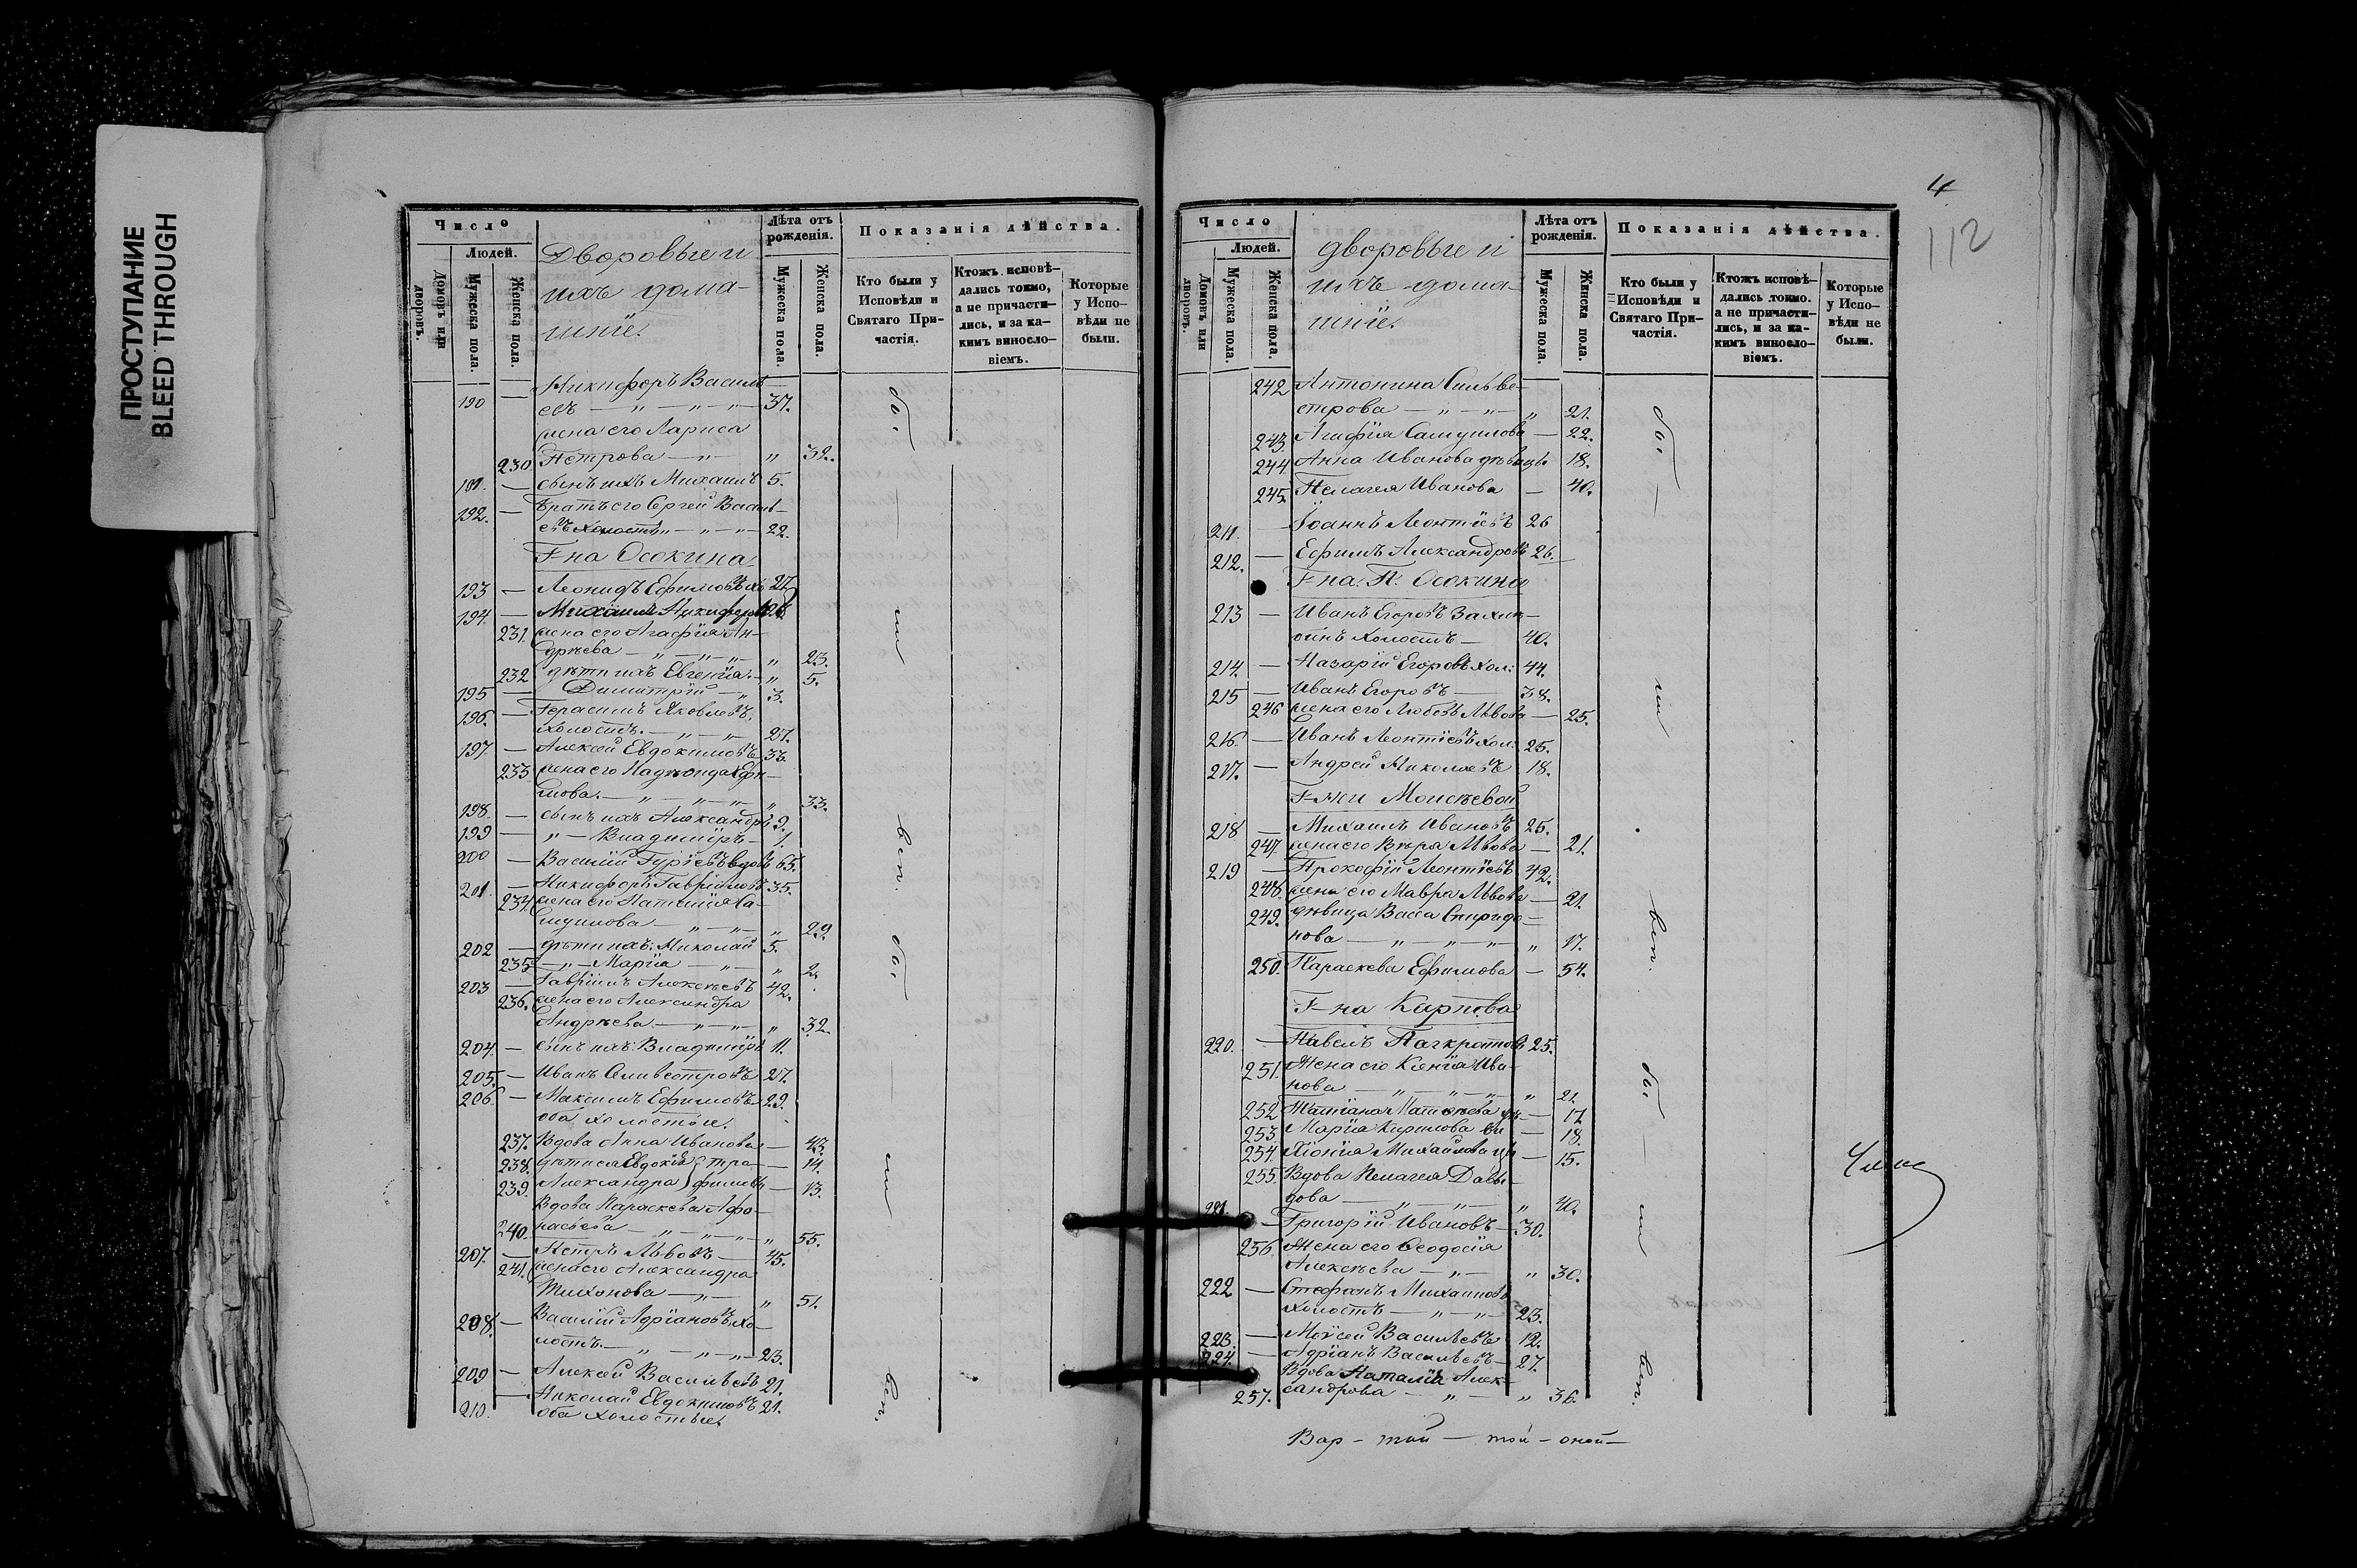 ПРОСТУПАНИЕ
BLEED THROUGH
Число
Людей.
Домовъ или дворовъ.
Мужеска пола.
Женска пола.
Дворовые и
ихъ дома-
шніе.
Лѣта отъ рожденія.
Мужеска пола.
Женска пола.
Показанія дѣйства.
Кто были у Исповѣди и Святаго Причастія.
Ктожъ исповѣ-
дались токмо,
а не причасти-
лись, и за ка-
кимъ винosло-
віемъ.
Которые
у Испо-
вѣди не
были.
190 — Никифоръ Василь-
евъ — „ — „ — „ — 37.
жена его Лариса
230. Петрова — „ — „ 32.
191. — сынъ ихъ Михаилъ 5.
192. — Братъ его Сергей Василь-
евъ холостъ „ — „ — „ — 22.
Г-на Осокина.
193 — Леонидъ Ефимовъ хо 27
194. — Михаилъ Никифоровъ 28
231. жена его Агафія Ан-
дрѣева — „ — „ — „ — „ 23.
232 дѣти ихъ Евгенія — „ 5.
195 — Димитрій — „ 3.
196. — Герасимъ Яковлевъ
холостъ. — „ — „ — 27.
197. — Алексей Евдокимовъ 33.
233. жена его Надежда Ефи-
мова. — „ — „ — „ — „ 33.
198. — сынъ ихъ Александръ 9.
199 — „ — Владиміръ — 1.
200 — Василій Гурьевъ вдовъ 65.
201. — Никифоръ Гавріиловъ 35.
234. жена его Наталія Са-
муилова — „ — „ — „ 29.
202 — дѣти ихъ: Николай 5.
235. — „ — Марія — „ — „ 2.
203 — Гавріилъ Алексѣевъ 42.
236. жена его Александра
Андрѣева. — „ — „ — „ 32.
204. — сынъ ихъ: Владиміръ 11.
205. — Иванъ Селивестровъ 27.
206. — Максимъ Ефимовъ 29.
оба холостые.
237. Вдова Анна Иванова — 43.
238. дѣти ея Евдокія } Тро- — 14.
239. Александра } фимовы — 13.
Вдова Параскева Афо-
240. насьева — „ — „ — „ — „ 55.
207. — Петръ Львовъ — 45.
241. жена его Александра
Тихонова — „ — „ 51.
208. — Василій Адріановъ хо-
лостъ. — „ — „ — „ — 23.
209 — Алексей Васильевъ 21.
210. — Николай Евдокимовъ 21.
оба холостые.
бы — ли — исп. бы — ли — исп.
4
112
Число
Людей.
Домовъ или дворовъ.
Мужеска пола.
Женска пола.
дворовые и
ихъ дома-
шніе.
Лѣта отъ рожденія.
Мужеска пола.
Женска пола.
Показанія дѣйства.
Кто были у Исповѣди и Святаго Причастія.
Ктожъ исповѣ-
дались токмо.
а не причасти-
лись, и за ка-
кимъ винosло-
віемъ.
Которые
у Испо-
вѣди не
были.
242 Антонина Сильве-
строва — „ — „ — „ 21.
243. Агафія Самуилова — 22.
244. Анна Иванова дѣвицы 18.
245. Пелагея Иванова — 40.
211. — Іоаннъ Леонтіевъ 26
212. — Ефимъ Александровъ 26.
Г-на П. Осокина
213 — Иванъ Егоровъ
холостъ — 40.
214. — Назарій Егоровъ хол: 44.
215 — Иванъ Егоровъ — 38.
246 жена его Любовь Львова — 25.
216. — Иванъ Леонтіевъ хол: 25.
217. — Андрей Николаевъ 18.
Г-жи Моисѣевой
218 — Михаилъ Ивановъ 25.
247. жена его Вѣра Львова — 21.
219 — Прокофій Леонтіевъ 42.
248. жена его Мавра Львова — 21.
249. дѣвица Васса Спиридо-
нова — „ — „ — „ — „ 17.
250. Параскева Ефимова — 54.
Г-на Карпова
220. — Павелъ Панкратовъ 25.
251. Жена его Ксенія Ива-
нова — „ — „ — „ — „ 21.
252 Татіана Матвѣева дѣ- — 17
253 Марія Кирилова ви- — 18.
254. Хіонія Михайлова цы — 15.
255. Вдова Пелагея Давы-
дова — „ — „ — „ 40.
221. — Григорій Ивановъ — 30.
256. Жена его Ѳеодосія
Алексѣева — „ — „ 30.
222 — Стефанъ Михаиловъ
холостъ — „ — „ — 23.
223. — Моѵсей Васильевъ 12.
224. — Адріанъ Васильевъ — 27.
Вдова Наталія Алек-
257. сандрова — „ — „ 36.
бы — ли исп. бы — ли исп.